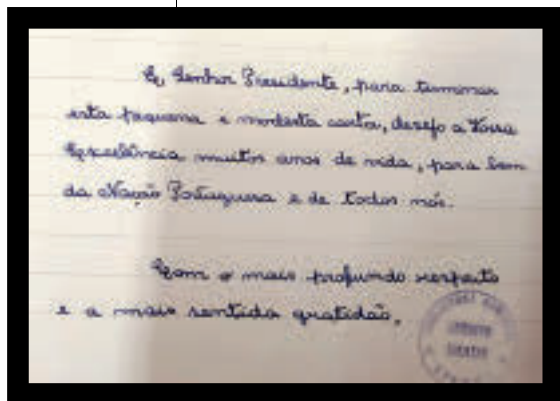 E, Senhor Presidente, para terminar
esta pequena e modesta carta, desejo a Vossa
Excelência muitos anos de vida, para bem
da Nação Portuguesa e de todos nós.
Com o mais profundo respeito
e a mais sentida gratidão,